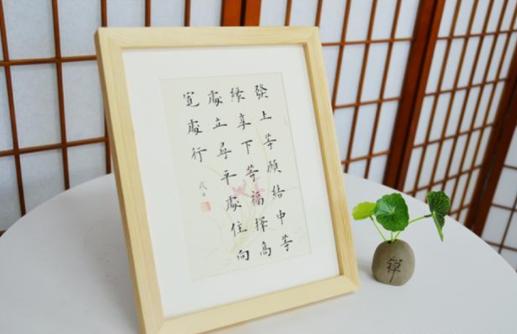 發上等願結中等
緣享下等福擇高
處立尋平處住向
寬處行
禪